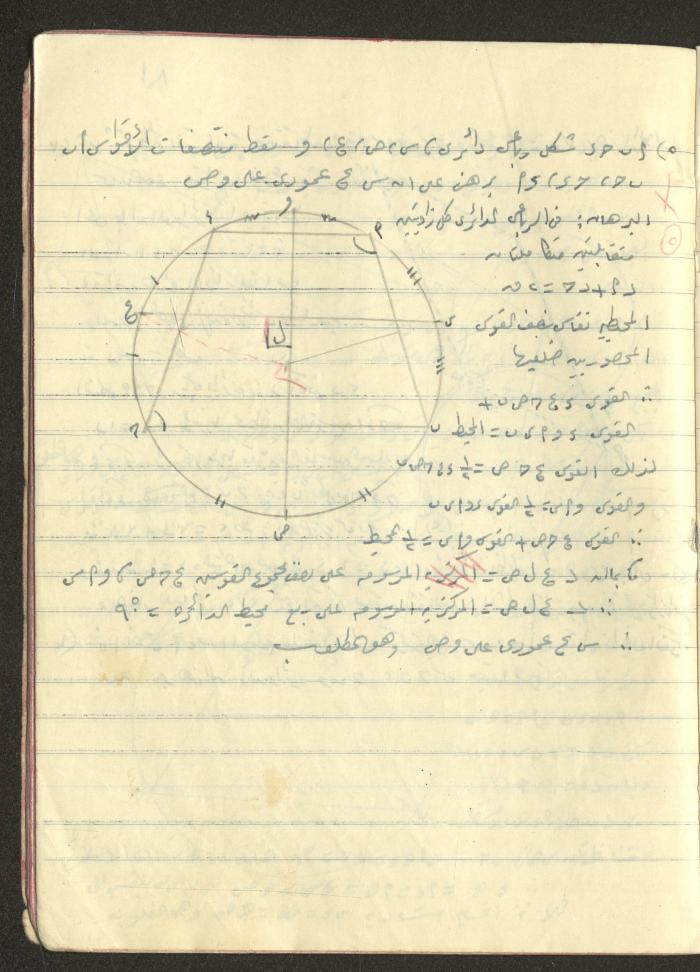 ٥) ا ب ح د شكل رباعى دائرى ، س ، ص ، ع ، و نقط منتصفات الأقواس ا ب
ب ح ، ح د ، د ا برهن على ان س ع عمودى على و ص
البرهان : فى الرباعى الدائرى كل زاويتين
متقابلتين متكاملتان
د ا + د ح = ٢ ق
المحيطيه تقاس بنصف القوس
المحصور بين ضلعيها
∴ القوس د ع ح ص ب +
القوس د و ا س ب = المحيط
لذلك القوس ع ح ص = ١/٢ د ع ح ص ب
والقوس و ا س = ١/٢ القوس د و ا س ب
∴ القوس ع ح ص + القوس و ا س = ١/٢ المحيط
كما ان د ع ل ص = المركزيه المرسومه على نصف مجموع القوسين ع ح ص ، و ا س
∴ د ع ل ص = المركزيه المرسومه على ربع محيط الدائره = ٩٠°
∴ س ع عمودى على و ص وهو المطلوب
و
د
ا
ع
س
ل
ح
ب
ص
٥
٨١